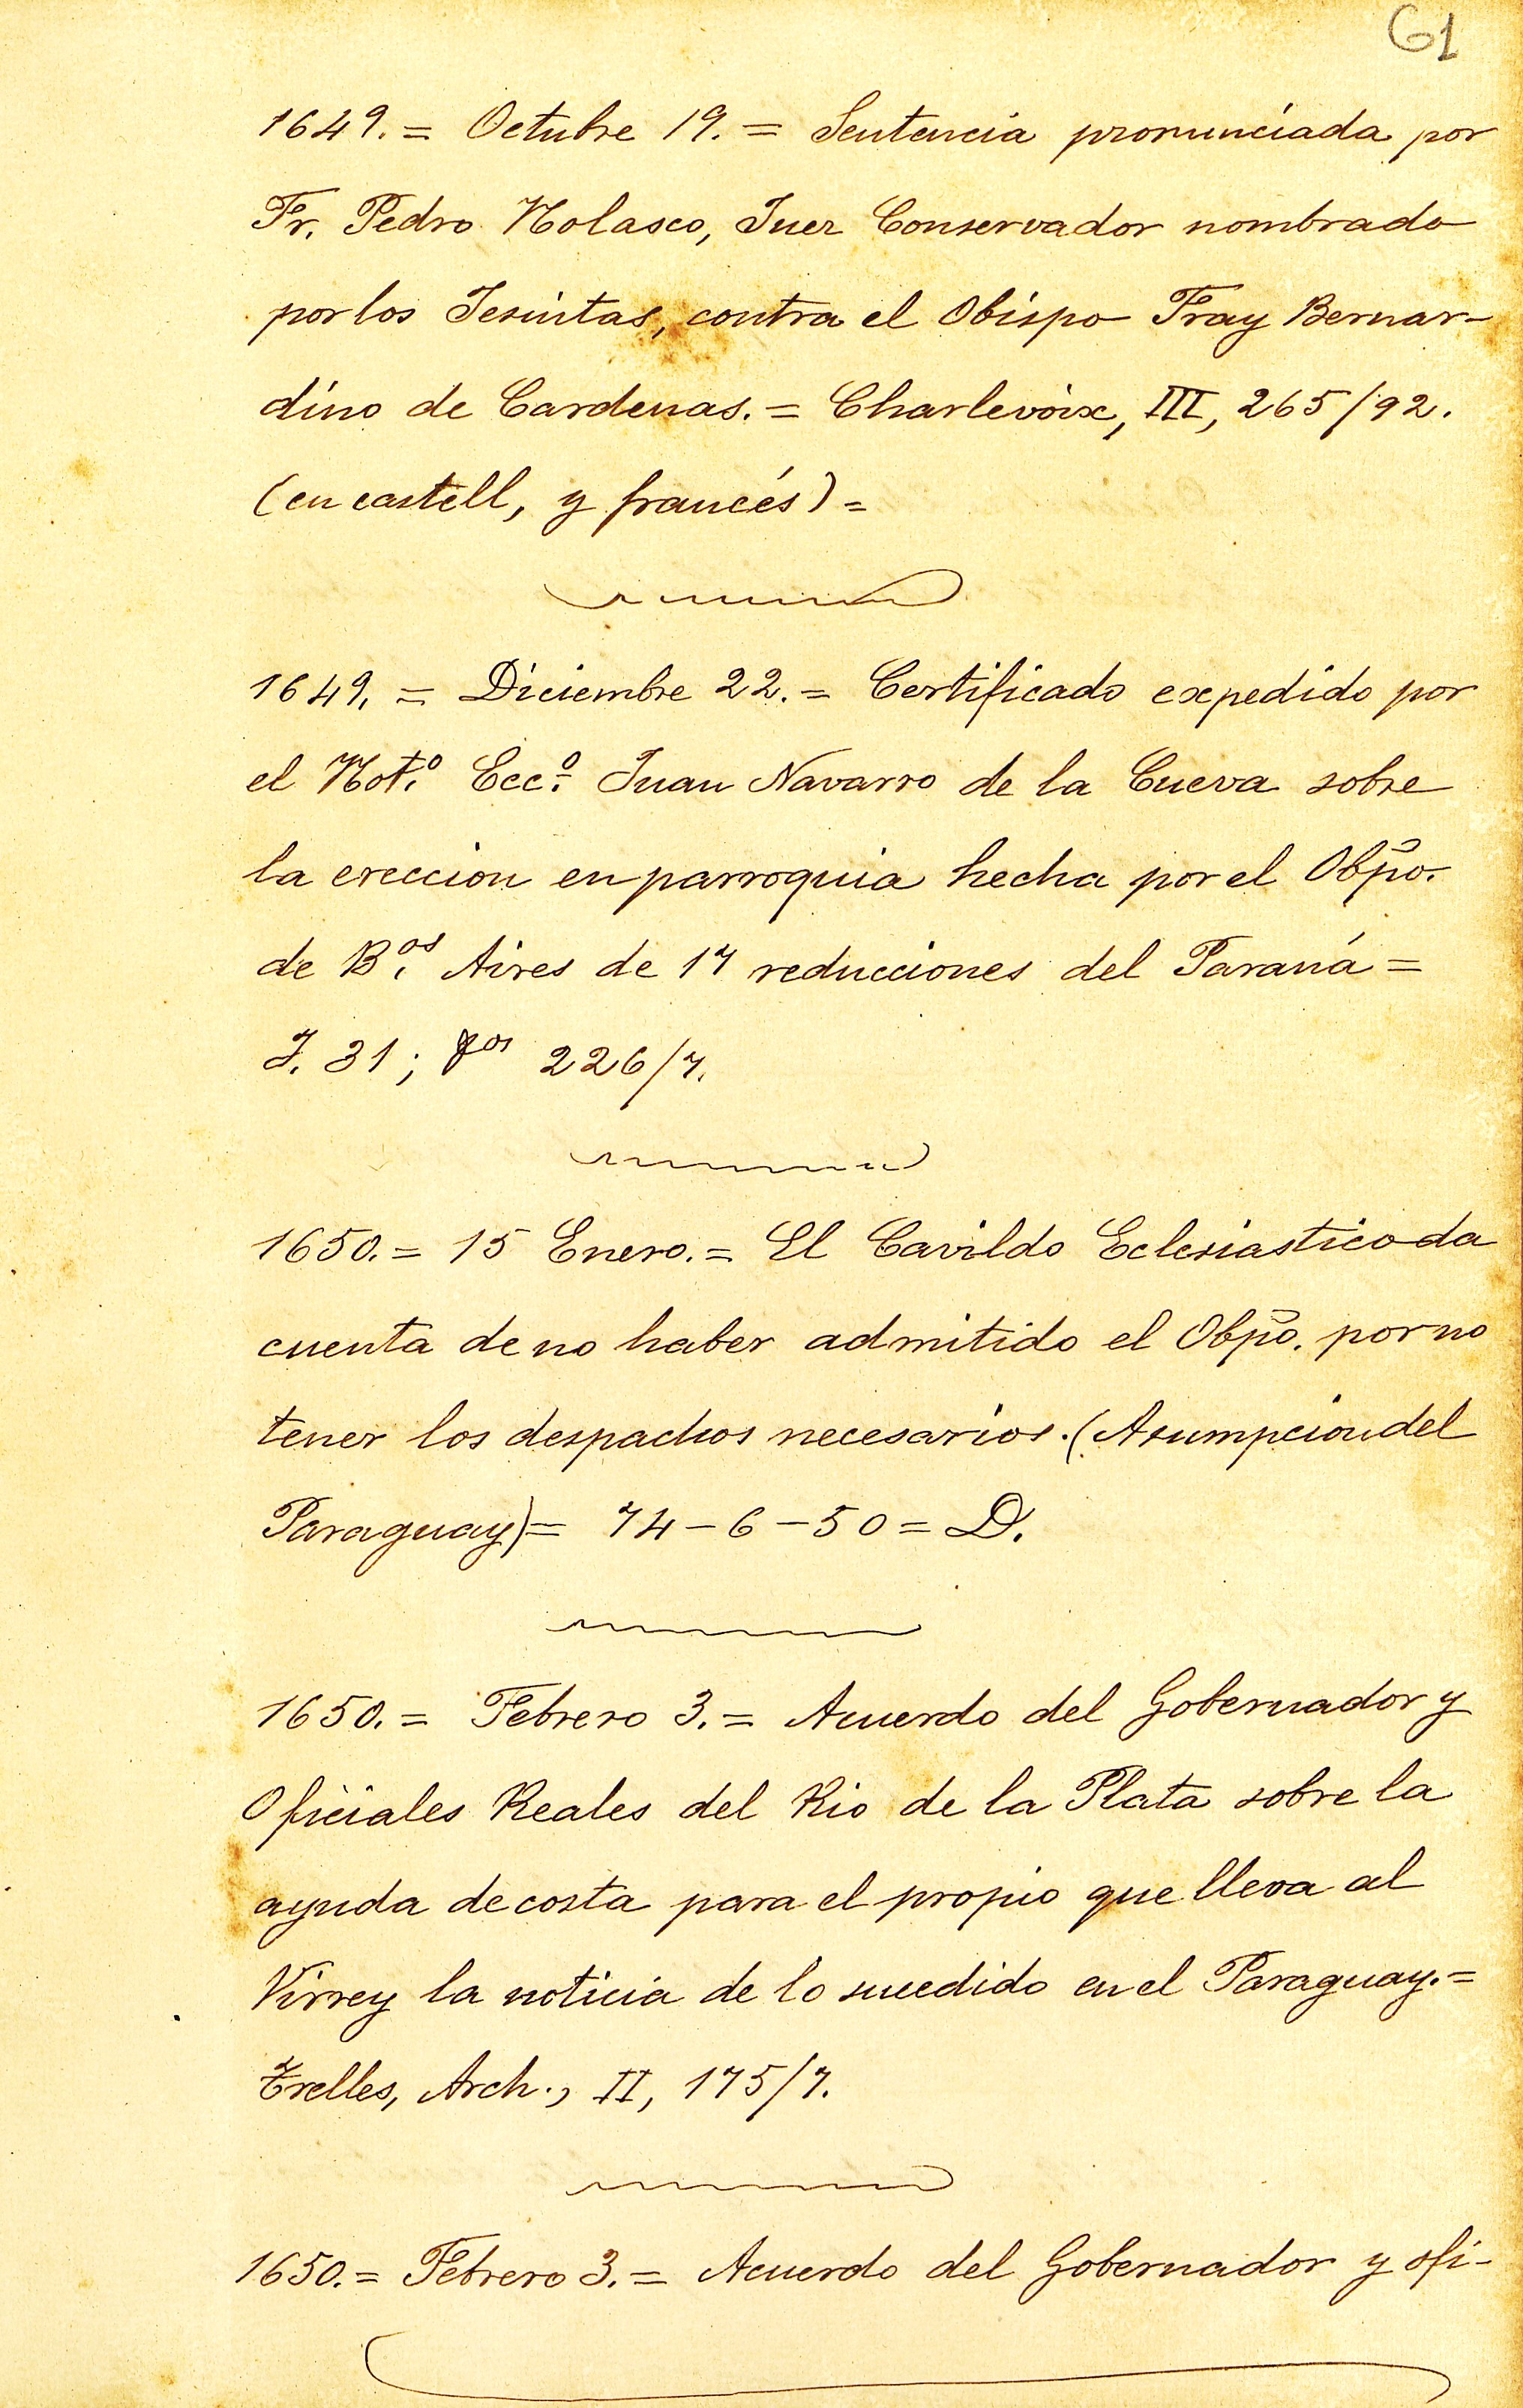 61
1649. = Octubre 19. = Sentencia pronunciada por
Fr. Pedro Nolasco, Juez Conservador nombrado
por los Jesuitas, contra el Obispo Fray Bernar-
dino de Cardenas. = Charlevoix, III, 265/92.
(en castell, y francés) =
1649. = Diciembre 22. = Certificado expedido por
el Not.º Ecc.º Juan Navarro de la Cueva sobre
la ereccion en parroquia hecha por el Obp̃o.
de B.os Aires de 17 reducciones del Paraná =
J. 31; fos 226/7.
1650. = 15 Enero. = El Cavildo Eclesiastico da
cuenta de no haber admitido el Obp̃o. por no
tener los despachos necesarios. (Asumpcion del
Paraguay) = 74-6-50 = D.
1650. = Febrero 3. = Acuerdo del Gobernador y
Oficiales Reales del Rio de la Plata sobre la
ayuda de costa para el propio que lleva al
Virrey la noticia de lo sucedido en el Paraguay. =
Trelles, Arch., II, 175/7.
1650. = Febrero 3. = Acuerdo del Gobernador y ofi-